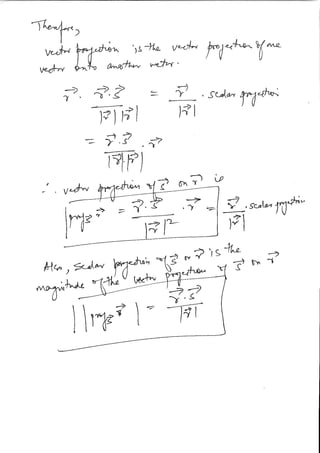 Therefore,
vector projection is the vector projection of one
vector onto another vector.
r⃗ · (r⃗·s⃗)/(|r⃗| |r⃗|) = r⃗/|r⃗| · scalar projection
= (r⃗·s⃗)/(|r⃗||r⃗|) · r⃗
∴ vector projection of s⃗ on r⃗ is
proj s⃗ r⃗ = (r⃗·s⃗)/|r⃗|² · r⃗ = r⃗/|r⃗| · scalar projection
Also, scalar projection of s⃗ on r⃗ is the
magnitude of the vector projection of s⃗ on r⃗
||proj s⃗ r⃗| = (r⃗·s⃗)/|r⃗|